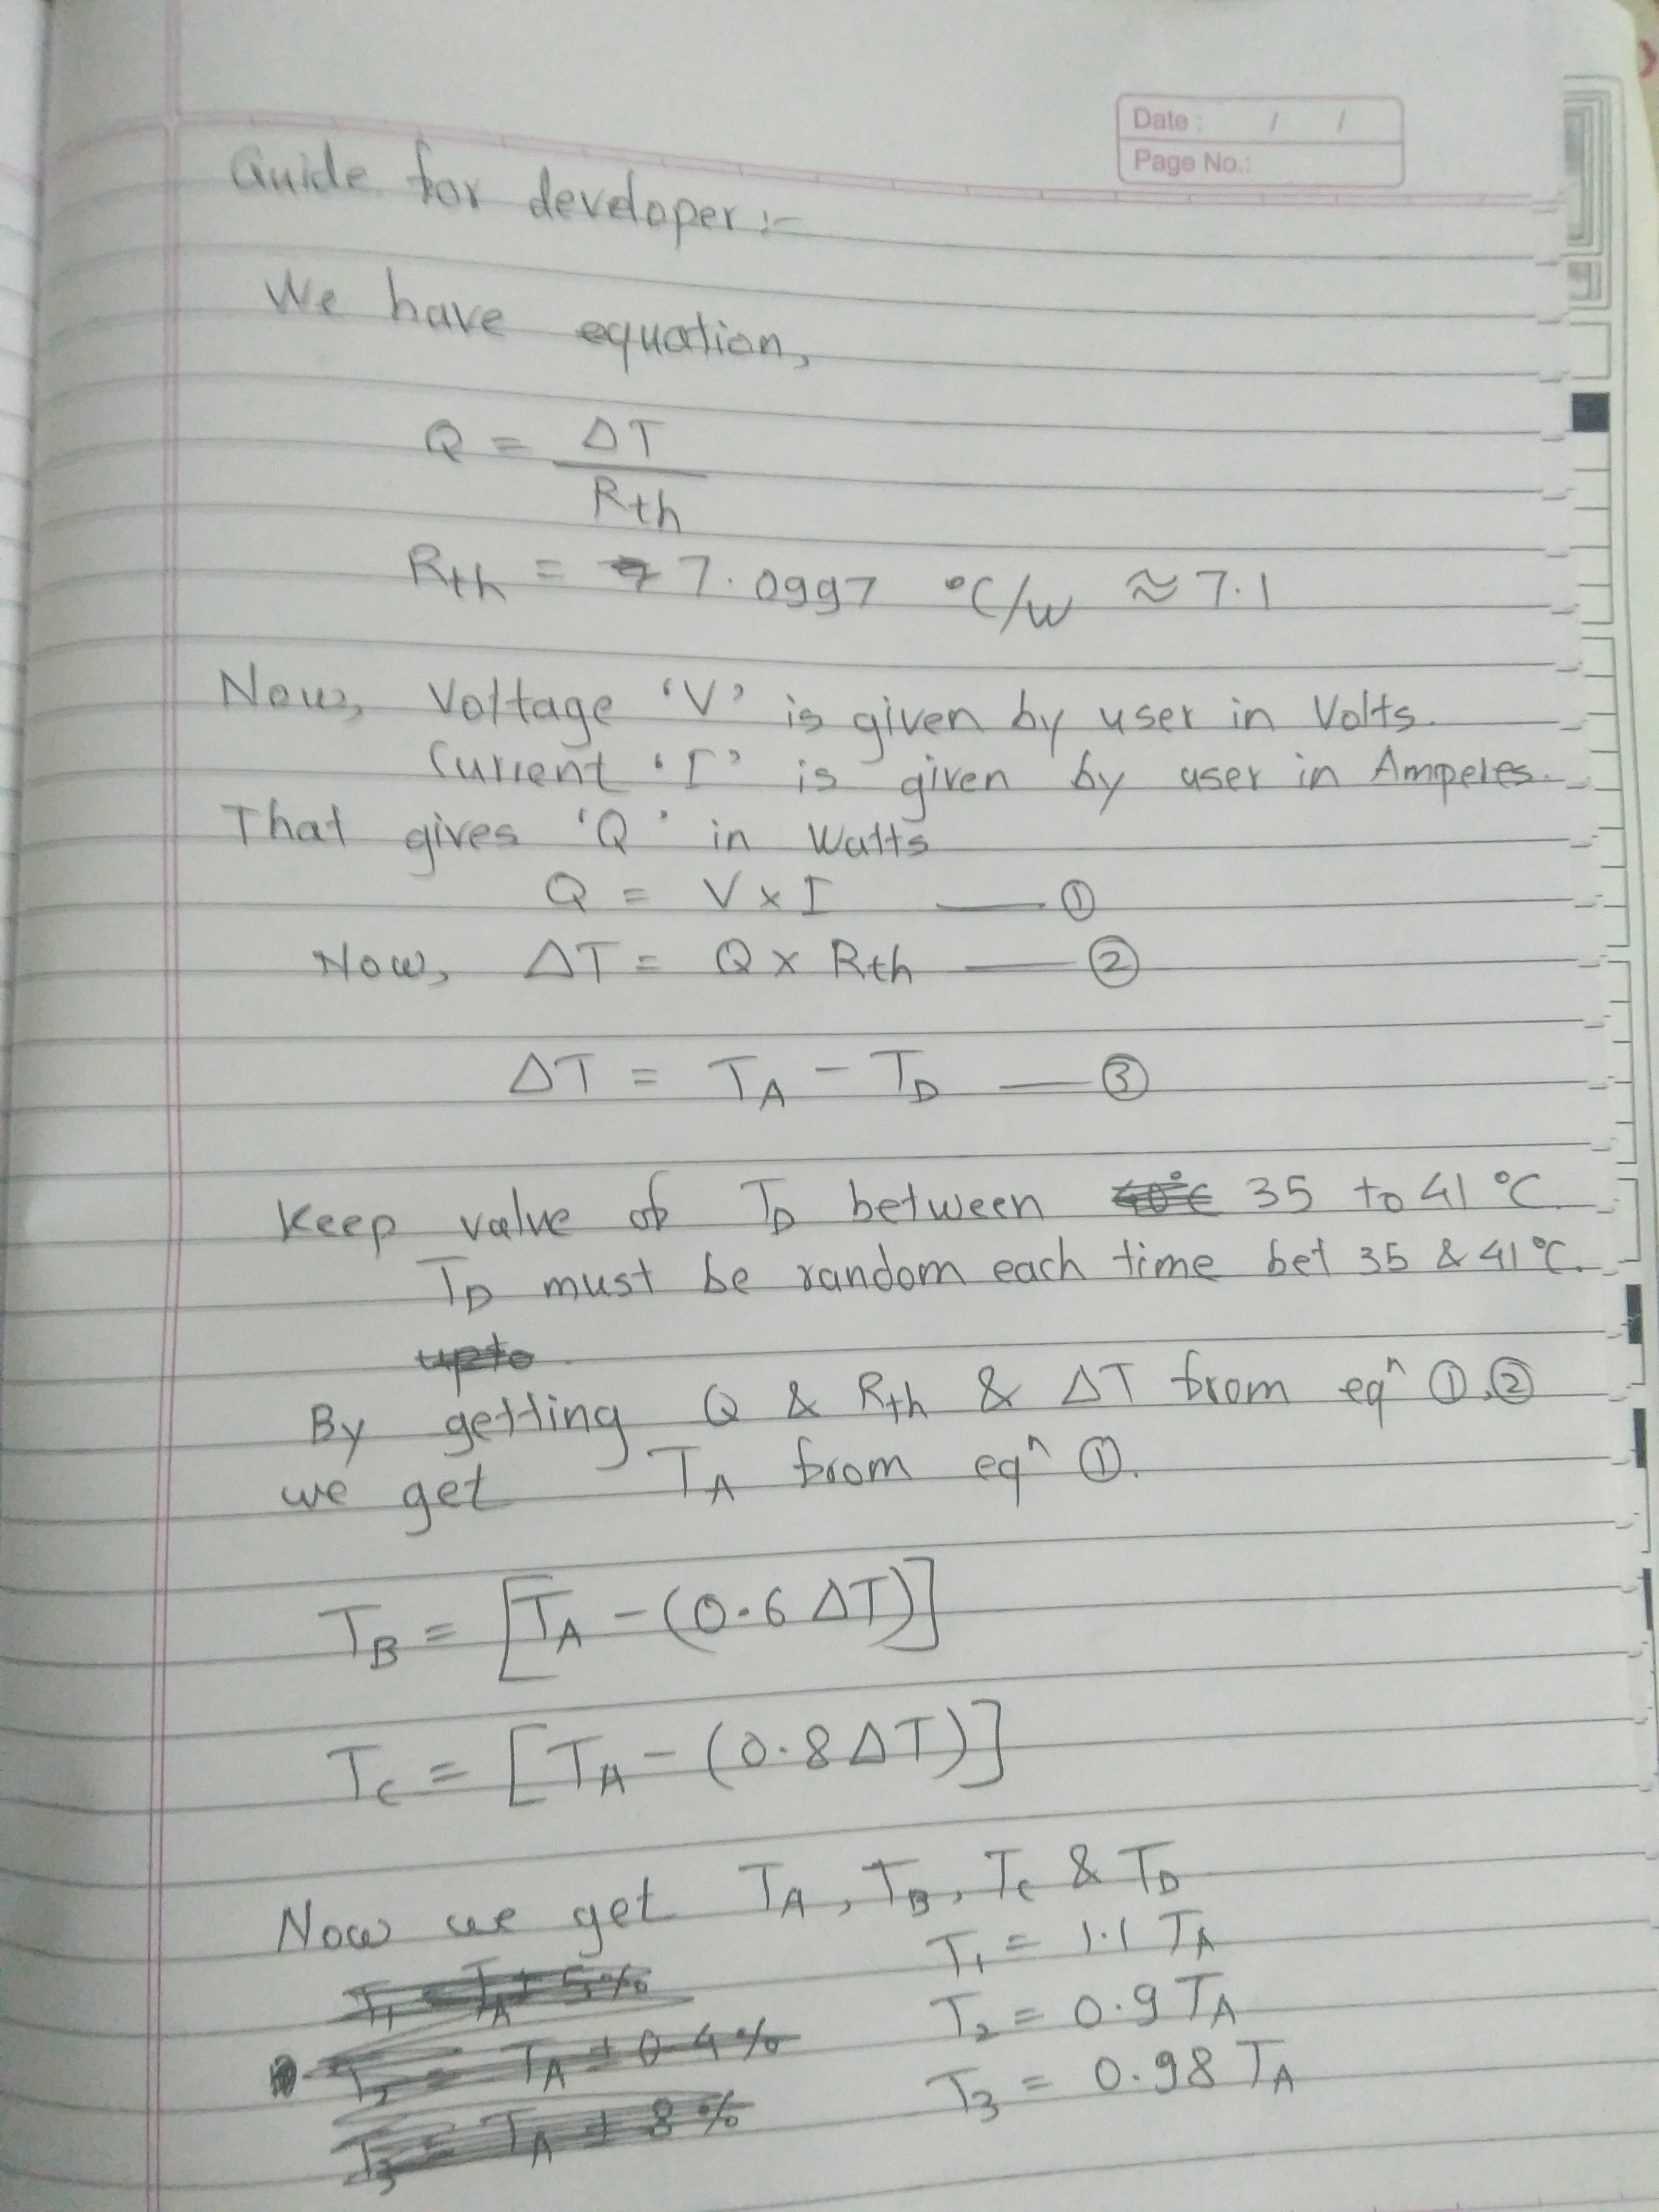 Date : / /
Page No.:
Guide for developer :-
We have equation,
Q = ΔT
Rth
Rth = 7.0997 °C/W ≈ 7.1
Now, Voltage 'V' is given by user in Volts.
Current 'I' is given by user in Amperes.
That gives 'Q' in Watts
Q = V x I —— ①
Now, ΔT = Q x Rth —— ②
ΔT = TA - TD —— ③
Keep value of TD between 40°C 35 to 41 °C.
TD must be random each time bet 35 & 41°C.
upto
By getting Q & Rth & ΔT from eqⁿ ①,②
we get TA from eqⁿ ①.
TB = [TA - (0.6 ΔT)]
TC = [TA - (0.8 ΔT)]
Now we get TA, TB, TC & TD
T1 = 1.1 TA
T2 = 0.9 TA
T3 = 0.98 TA
T1 = TA ± 5%
T2 = TA ± 0.4%
T3 = TA ± 8%